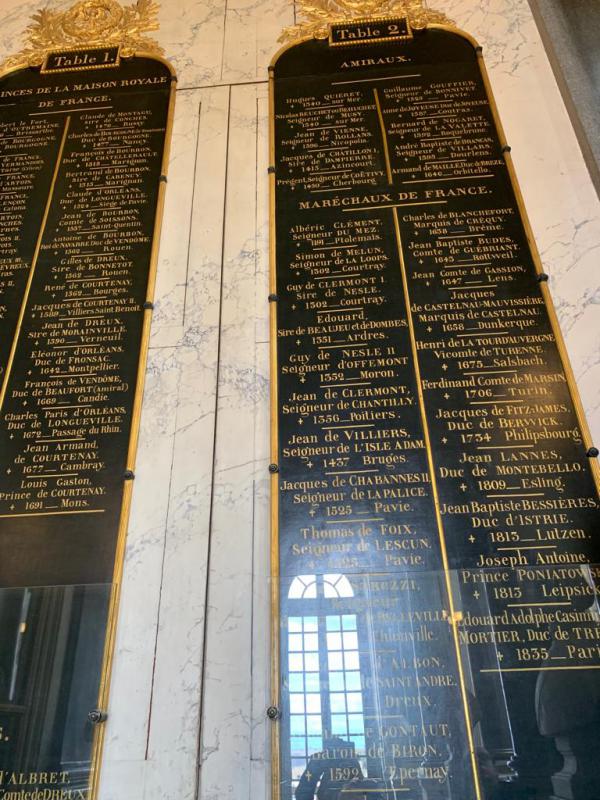 Table 1.
INCES DE LA MAISON ROYALE
DE FRANCE.
Claude de MONTAGU,
Sire de CONCHES.
† 1470 Bussy
Charles de BOURGOGNE
Duc de BOURGOGNE.
† 1477 Nancy.
François de BOURBON,
Duc de CHATELLERAULT
† 1515 Marignan.
Bertrand de BOURBON,
Sire de CARENCY.
† 1515 Marignan
Claude d'ORLÉANS,
Duc de LONGUEVILLE.
† 1524 Siège de Pavie.
Jean de BOURBON
Comte de SOISSONS.
† 1557 Saint-Quentin
Antoine de BOURBON,
Roi de NAVARRE Duc de VENDÔME.
† 1562 Rouen.
Gilles de DREUX,
Sire de BONNETOT.
† 1562 Rouen.
René de COURTENAY.
† 1562 Bourges.
Jacques de COURTENAY II.
† 1589 Villiers Saint Benoit.
Jean de DREUX,
Sire de MORAINVILLE.
† 1590 Verneuil.
Eléonor d'ORLÉANS,
Duc de FRONSAC.
† 1642 Montpellier.
François de VENDÔME,
Duc de BEAUFORT (Amiral)
† 1669 Candie.
Charles Paris d'ORLÉANS,
Duc de LONGUEVILLE.
† 1672 Passage du Rhin.
Jean Armand,
de COURTENAY.
† 1677 Cambray.
Louis Gaston,
Prince de COURTENAY.
† 1691 Mons.
d'ALBRET,
Comte de DREUX
Table 2.
AMIRAUX.
Hugues QUIERET,
† 1340 sur Mer.
Nicolas BEUCHET ou BEHUCHET
Seigneur de MUSY
† 1340 sur mer
Jean de VIENNE,
Seigneur de ROLLANS.
† 1396 Nicopolis.
Jacques de CHATILLON I,
Sire de DAMPIERRE.
† 1415 Azincourt.
Prégent, Seigneur de COËTIVY.
† 1450 Cherbourg.
Guillaume GOUFFIER,
Seigneur de BONNIVET.
† 1525 Pavie.
Anne de JOYEUSE, Duc de JOYEUSE.
† 1587 Coutras.
Bernard de NOGARET,
Seigneur de LA VALETTE.
† 1592 Roquebrune.
André Baptiste de BRANCAS,
Seigneur de VILLARS.
† 1595 Dourlens.
Armand de MAILLÉ Duc de BREZÉ,
† 1646 Orbitello.
MARÉCHAUX DE FRANCE.
Albéric CLÉMENT,
Seigneur DU MEZ.
† 1191 Ptolemaïs.
Simon de MELUN,
Seigneur de LA LOOPS.
† 1302 Courtray.
Guy de CLERMONT I.
Sire de NESLE.
† 1302 Courtray.
Edouard,
Sire de BEAUJEU et de DOMBES,
† 1351 Ardres.
Guy de NESLE II
Seigneur d'OFFEMONT
† 1352 Moron.
Jean de CLERMONT,
Seigneur de CHANTILLY.
† 1356 Poitiers.
Jean de VILLIERS,
Seigneur de L'ISLE ADAM.
† 1437 Bruges.
Jacques de CHABANNES II.
Seigneur de LA PALICE.
† 1525 Pavie.
Thomas de FOIX,
Seigneur de LESCUN.
† 1525 Pavie.
STROZZI,
Seigneur
BELLEVILLE
Thionville.
d'ALBON,
SAINT ANDRÉ.
Dreux.
GONTAUT,
Baron de BIRON.
† 1592 Epernay.
Charles de BLANCHEFORT,
Marquis de CRÉQUY.
† 1638 Brême.
Jean Baptiste BUDES,
Comte de GUÉBRIANT.
† 1643 Rottweil.
Jean Comte de GASSION,
† 1647 Lens.
Jacques
de CASTELNAU-MAUVISSIÈRE
Marquis de CASTELNAU.
† 1658 Dunkerque.
Henri de LA TOUR d'AUVERGNE
Vicomte de TURENNE.
† 1675 Salsbach.
Ferdinand Comte de MARSIN,
† 1706 Turin.
Jacques de FITZ-JAMES,
Duc de BERWICK.
† 1734 Philipsbourg.
Jean LANNES,
Duc de MONTEBELLO.
† 1809 Esling.
Jean Baptiste BESSIÈRES,
Duc d'ISTRIE.
† 1813 Lutzen.
Joseph Antoine,
Prince PONIATOWS
† 1813 Leipsick
Edouard Adolphe Casimir
MORTIER, Duc de TRÉ
† 1835 Pari